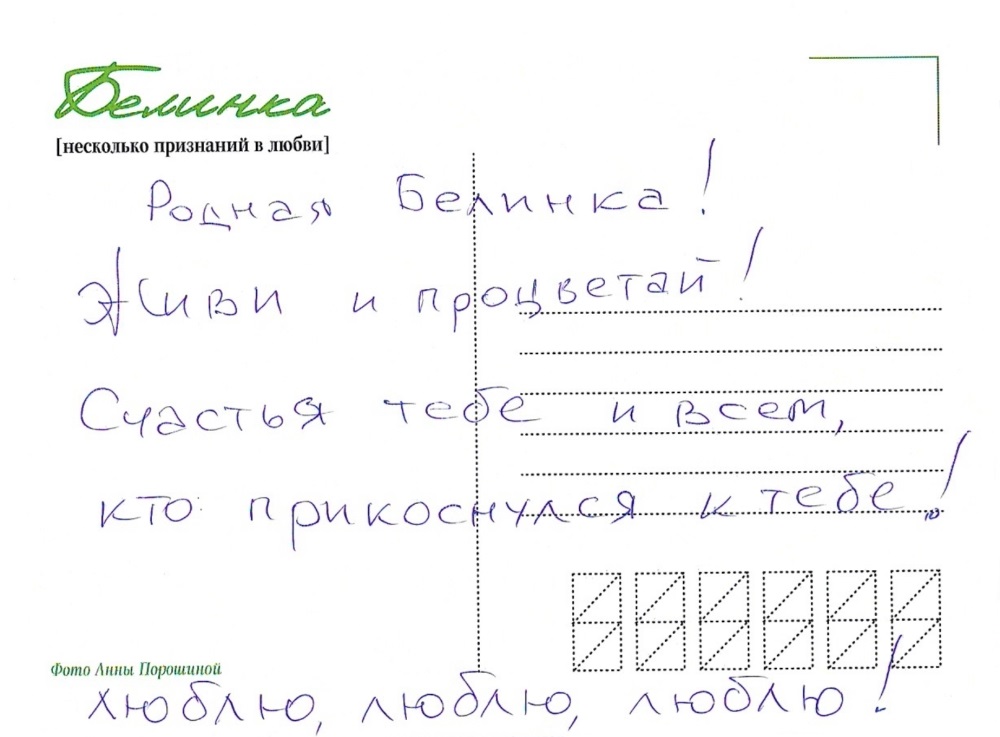 Белинка
[несколько признаний в любви]
Родная Белинка!
Живи и процветай!
Счастья тебе и всем,
кто прикоснулся к тебе!
Фото Анны Порошиной
люблю, люблю, люблю!